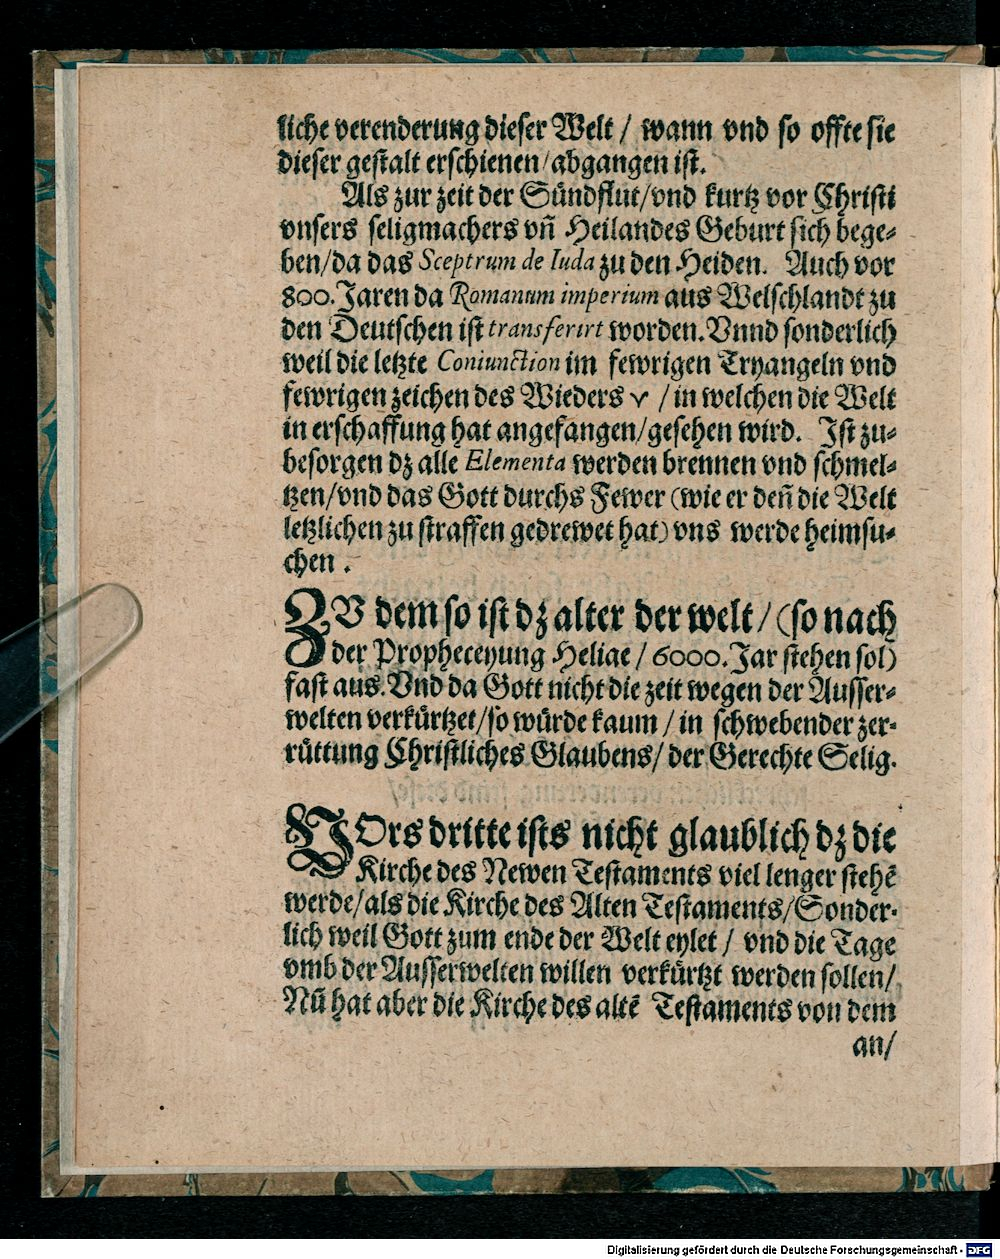 liche verenderung dieser Welt / wann vnd so offte sie
dieser gestalt erschienen/abgangen ist.
Als zur zeit der Sündflut/vnd kurtz vor Christi
vnsers seligmachers vñ Heilandes Geburt sich bege⸗
ben/da das Sceptrum de Iuda zu den Heiden. Auch vor
800. Jaren da Romanum imperium aus Welschlandt zu
den Deutschen ist transferirt worden. Vnnd sonderlich
weil die letzte Coniunction im fewrigen Tryangeln vnd
fewrigen zeichen des Wieders ♈ / in welchen die Welt
in erschaffung hat angefangen/gesehen wird. Ist zu⸗
besorgen dz alle Elementa werden brennen vnd schmel⸗
tzen/vnd das Gott durchs Fewer (wie er deñ die Welt
letzlichen zu straffen gedrewet hat) vns werde heimsu⸗
chen.
ZV dem so ist dz alter der welt / (so nach
der Propheceyung Heliae / 6000. Jar stehen sol)
fast aus. Vnd da Gott nicht die zeit wegen der Ausser⸗
welten verkürtzet/so würde kaum / in schwebender zer⸗
rüttung Christliches Glaubens/ der Gerechte Selig.
VOrs dritte ists nicht glaublich dz die
Kirche des Newen Testaments viel lenger stehē
werde/als die Kirche des Alten Testaments/Sonder⸗
lich weil Gott zum ende der Welt eylet / vnd die Tage
vmb der Ausserwelten willen verkürtzt werden sollen/
Nū hat aber die Kirche des altē Testaments von dem
an/
Digitalisierung gefördert durch die Deutsche Forschungsgemeinschaft - DFG